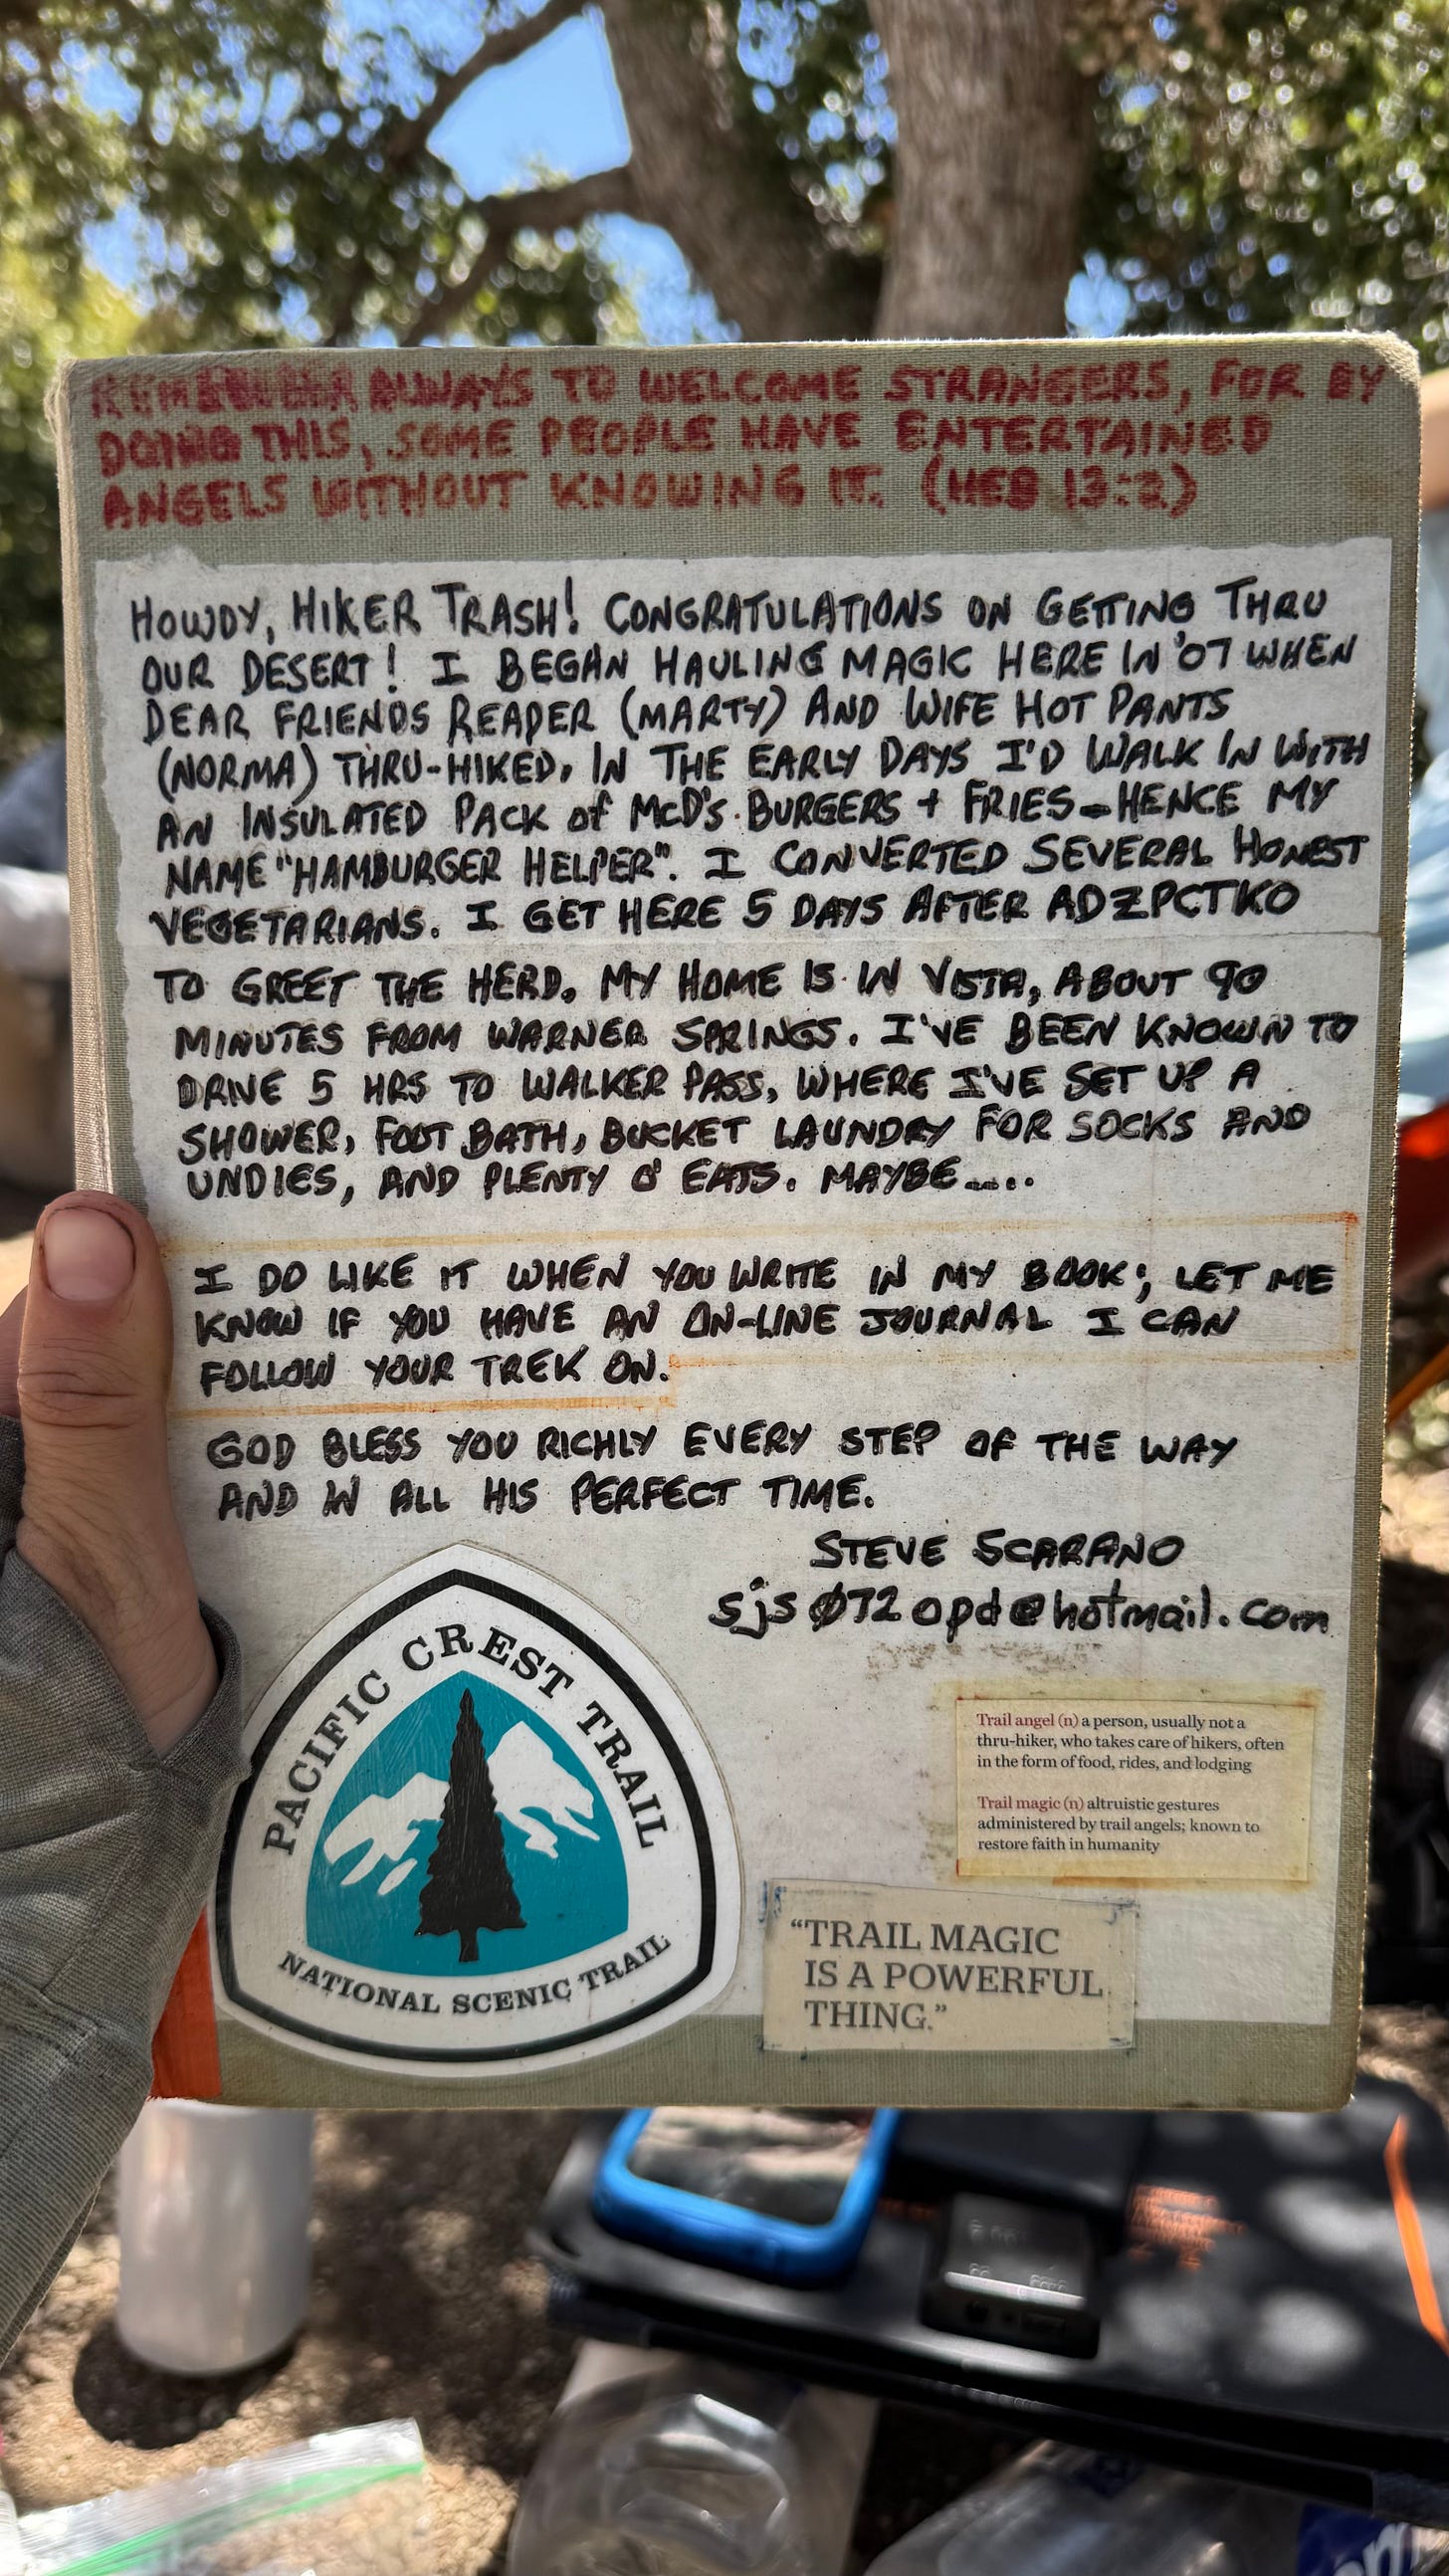 REMEMBER ALWAYS TO WELCOME STRANGERS, FOR BY
DOING THIS, SOME PEOPLE HAVE ENTERTAINED
ANGELS WITHOUT KNOWING IT. (HEB 13:2)
HOWDY, HIKER TRASH! CONGRATULATIONS ON GETTING THRU
OUR DESERT! I BEGAN HAULING MAGIC HERE IN '07 WHEN
DEAR FRIENDS REAPER (MARTY) AND WIFE HOT PANTS
(NORMA) THRU-HIKED. IN THE EARLY DAYS I'D WALK IN WITH
AN INSULATED PACK of McD's BURGERS + FRIES - HENCE MY
NAME "HAMBURGER HELPER". I CONVERTED SEVERAL HONEST
VEGETARIANS. I GET HERE 5 DAYS AFTER ADZPCTKO
TO GREET THE HERD. MY HOME IS IN VISTA, ABOUT 90
MINUTES FROM WARNER SPRINGS. I'VE BEEN KNOWN TO
DRIVE 5 HRS TO WALKER PASS, WHERE I'VE SET UP A
SHOWER, FOOT BATH, BUCKET LAUNDRY FOR SOCKS AND
UNDIES, AND PLENTY O' EATS. MAYBE....
I DO LIKE IT WHEN YOU WRITE IN MY BOOK; LET ME
KNOW IF YOU HAVE AN ON-LINE JOURNAL I CAN
FOLLOW YOUR TREK ON.
GOD BLESS YOU RICHLY EVERY STEP OF THE WAY
AND IN ALL HIS PERFECT TIME.
STEVE SCARANO
sjs072opd@hotmail.com
PACIFIC CREST TRAIL
NATIONAL SCENIC TRAIL
Trail angel (n) a person, usually not a
thru-hiker, who takes care of hikers, often
in the form of food, rides, and lodging
Trail magic (n) altruistic gestures
administered by trail angels; known to
restore faith in humanity
"TRAIL MAGIC
IS A POWERFUL
THING."